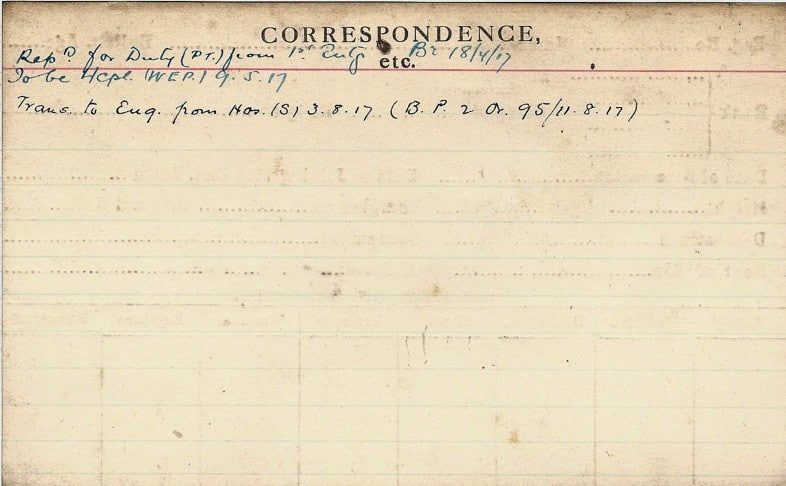 CORRESPONDENCE,
etc.
Repd. for Duty (PT.) from 1st Bde 18/4/17
To be A/Cpl. (W.E.P.) 9.5.17
Trans. to Eng. from Hos. (S) 3.8.17 (B.P. 2 Or. 95/11.8.17)